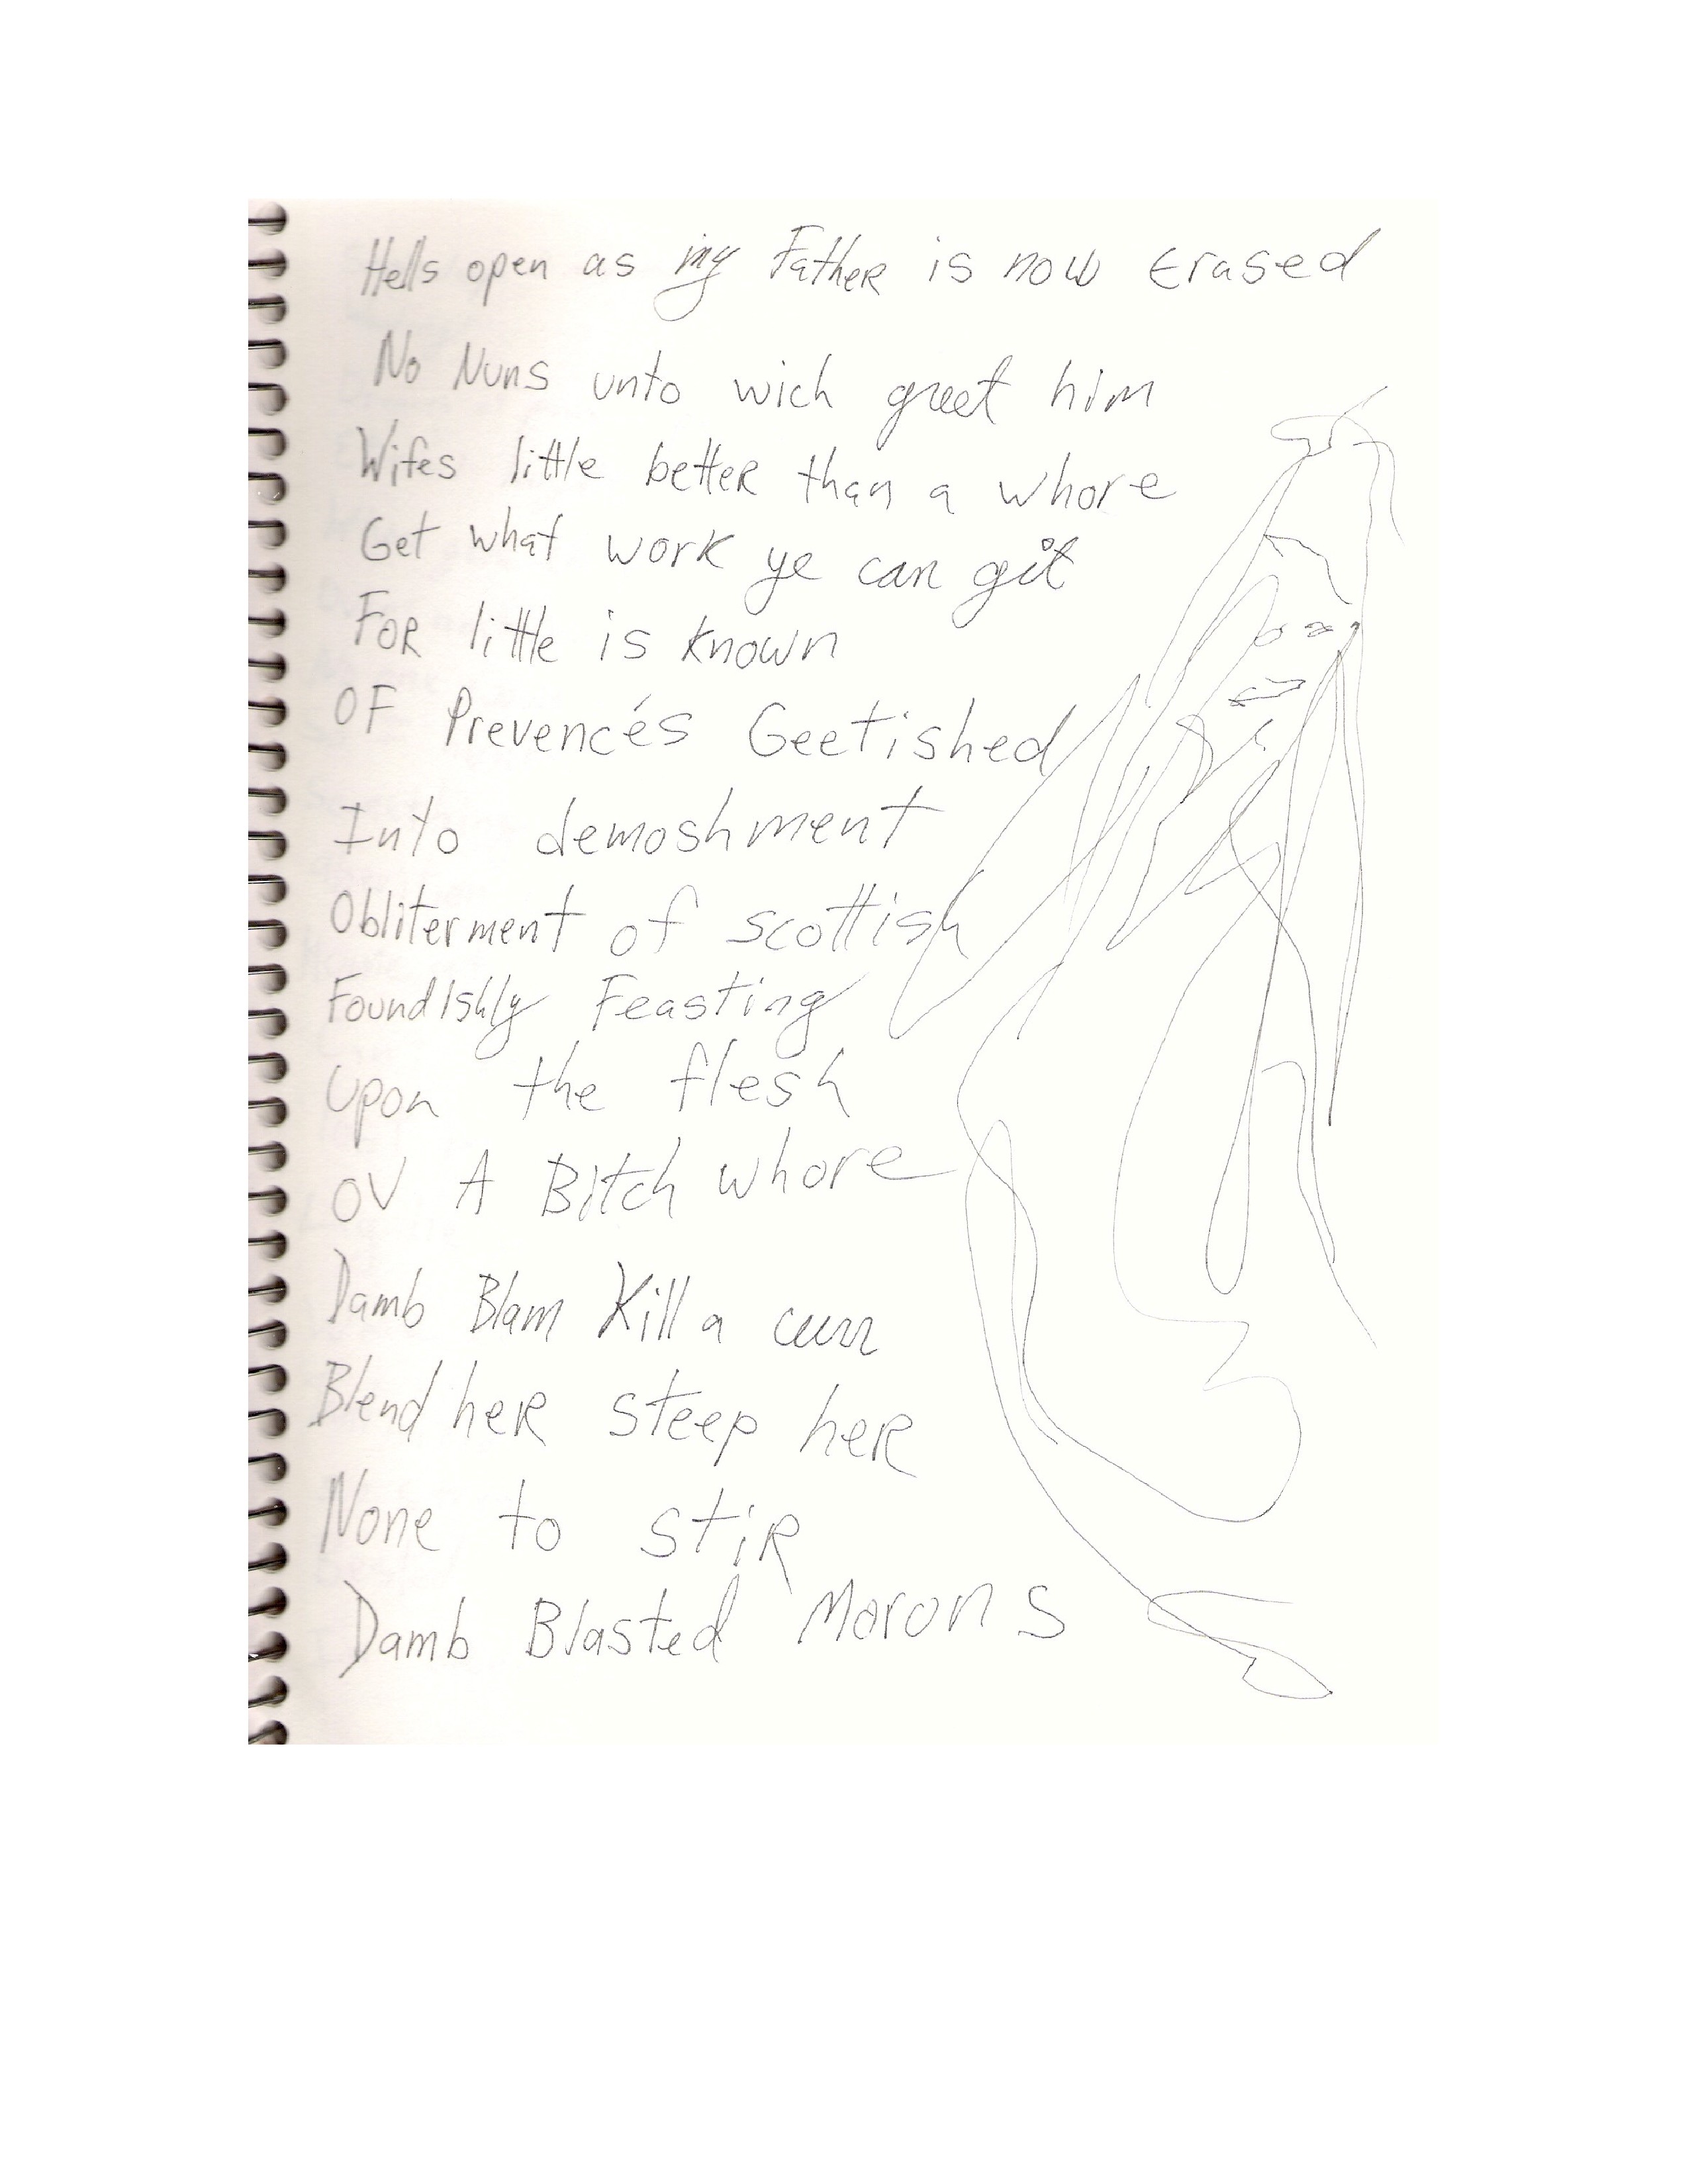 Hells open as my Father is now Erased
No Nuns unto wich greet him
Wifes little better than a whore
Get what work ye can git
For little is known
OF Prevencés Geetished
Into demoshment
Obliterment of scottish
Foundishly Feasting
Upon the flesh
OV A Bitch whore
Damb Blam Kill a curr
Blend her steep her
None to stir
Damb Blasted Morons